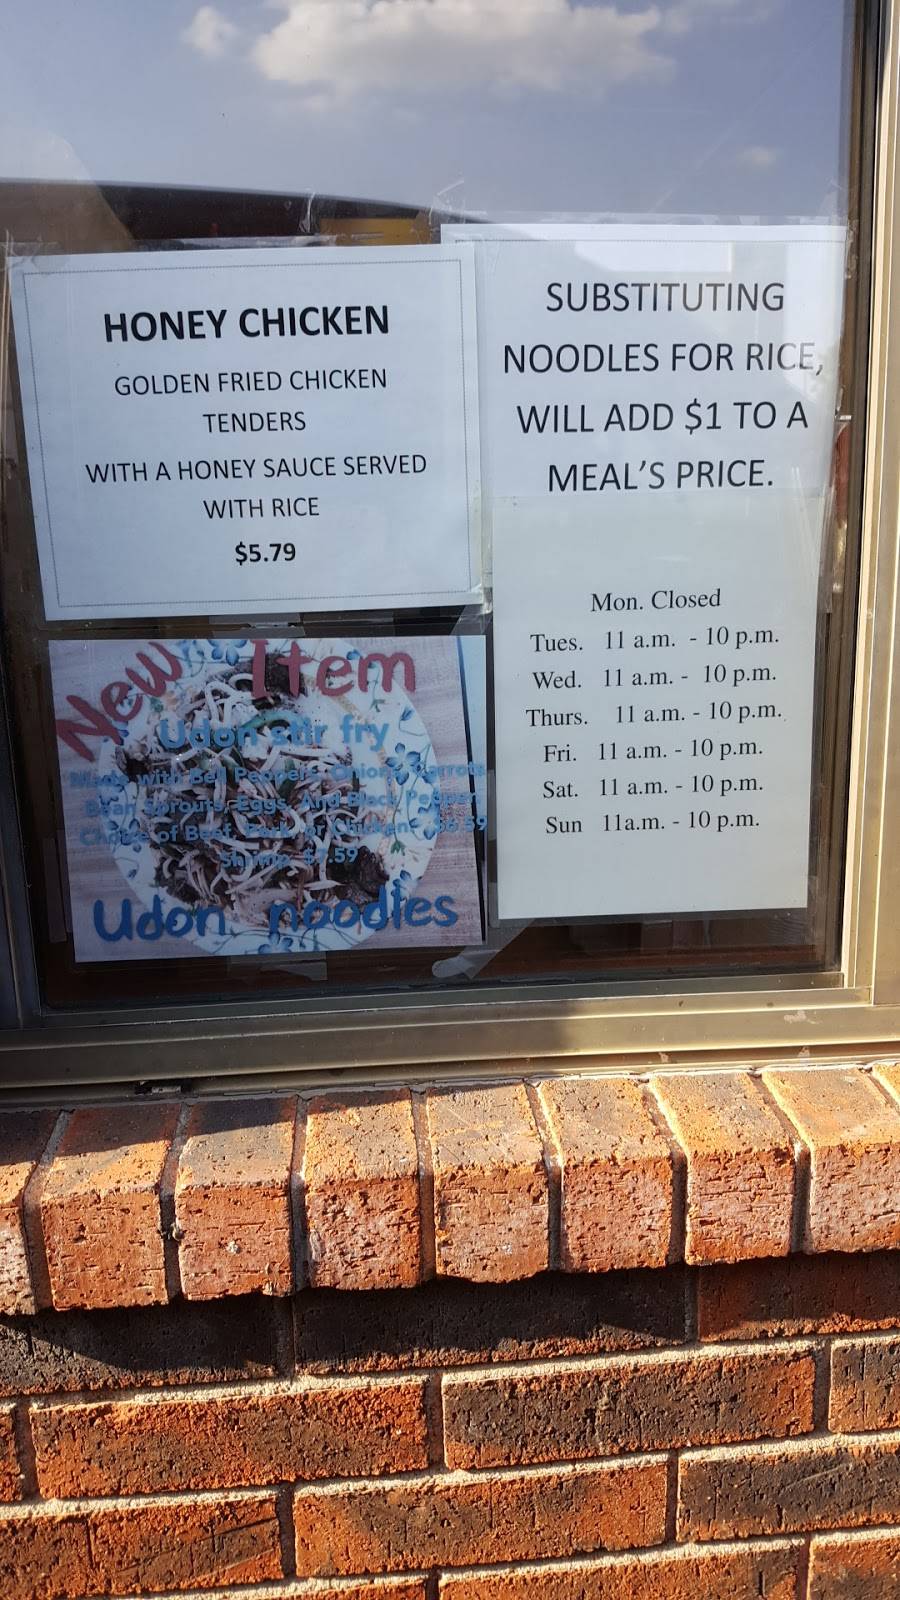 HONEY CHICKEN
GOLDEN FRIED CHICKEN
TENDERS
WITH A HONEY SAUCE SERVED
WITH RICE
$5.79
SUBSTITUTING
NOODLES FOR RICE,
WILL ADD $1 TO A
MEAL'S PRICE.
Mon. Closed
Tues. 11 a.m. - 10 p.m.
Wed. 11 a.m. - 10 p.m.
Thurs. 11 a.m. - 10 p.m.
Fri. 11 a.m. - 10 p.m.
Sat. 11 a.m. - 10 p.m.
Sun 11a.m. - 10 p.m.
New Item
Udon stir fry
Made with Bell Peppers, Onion, Carrots
Bean Sprouts, Eggs, And Black Pepper
Choice of Beef, Pork, or Chicken $6.59
Shrimp $7.59
Udon noodles